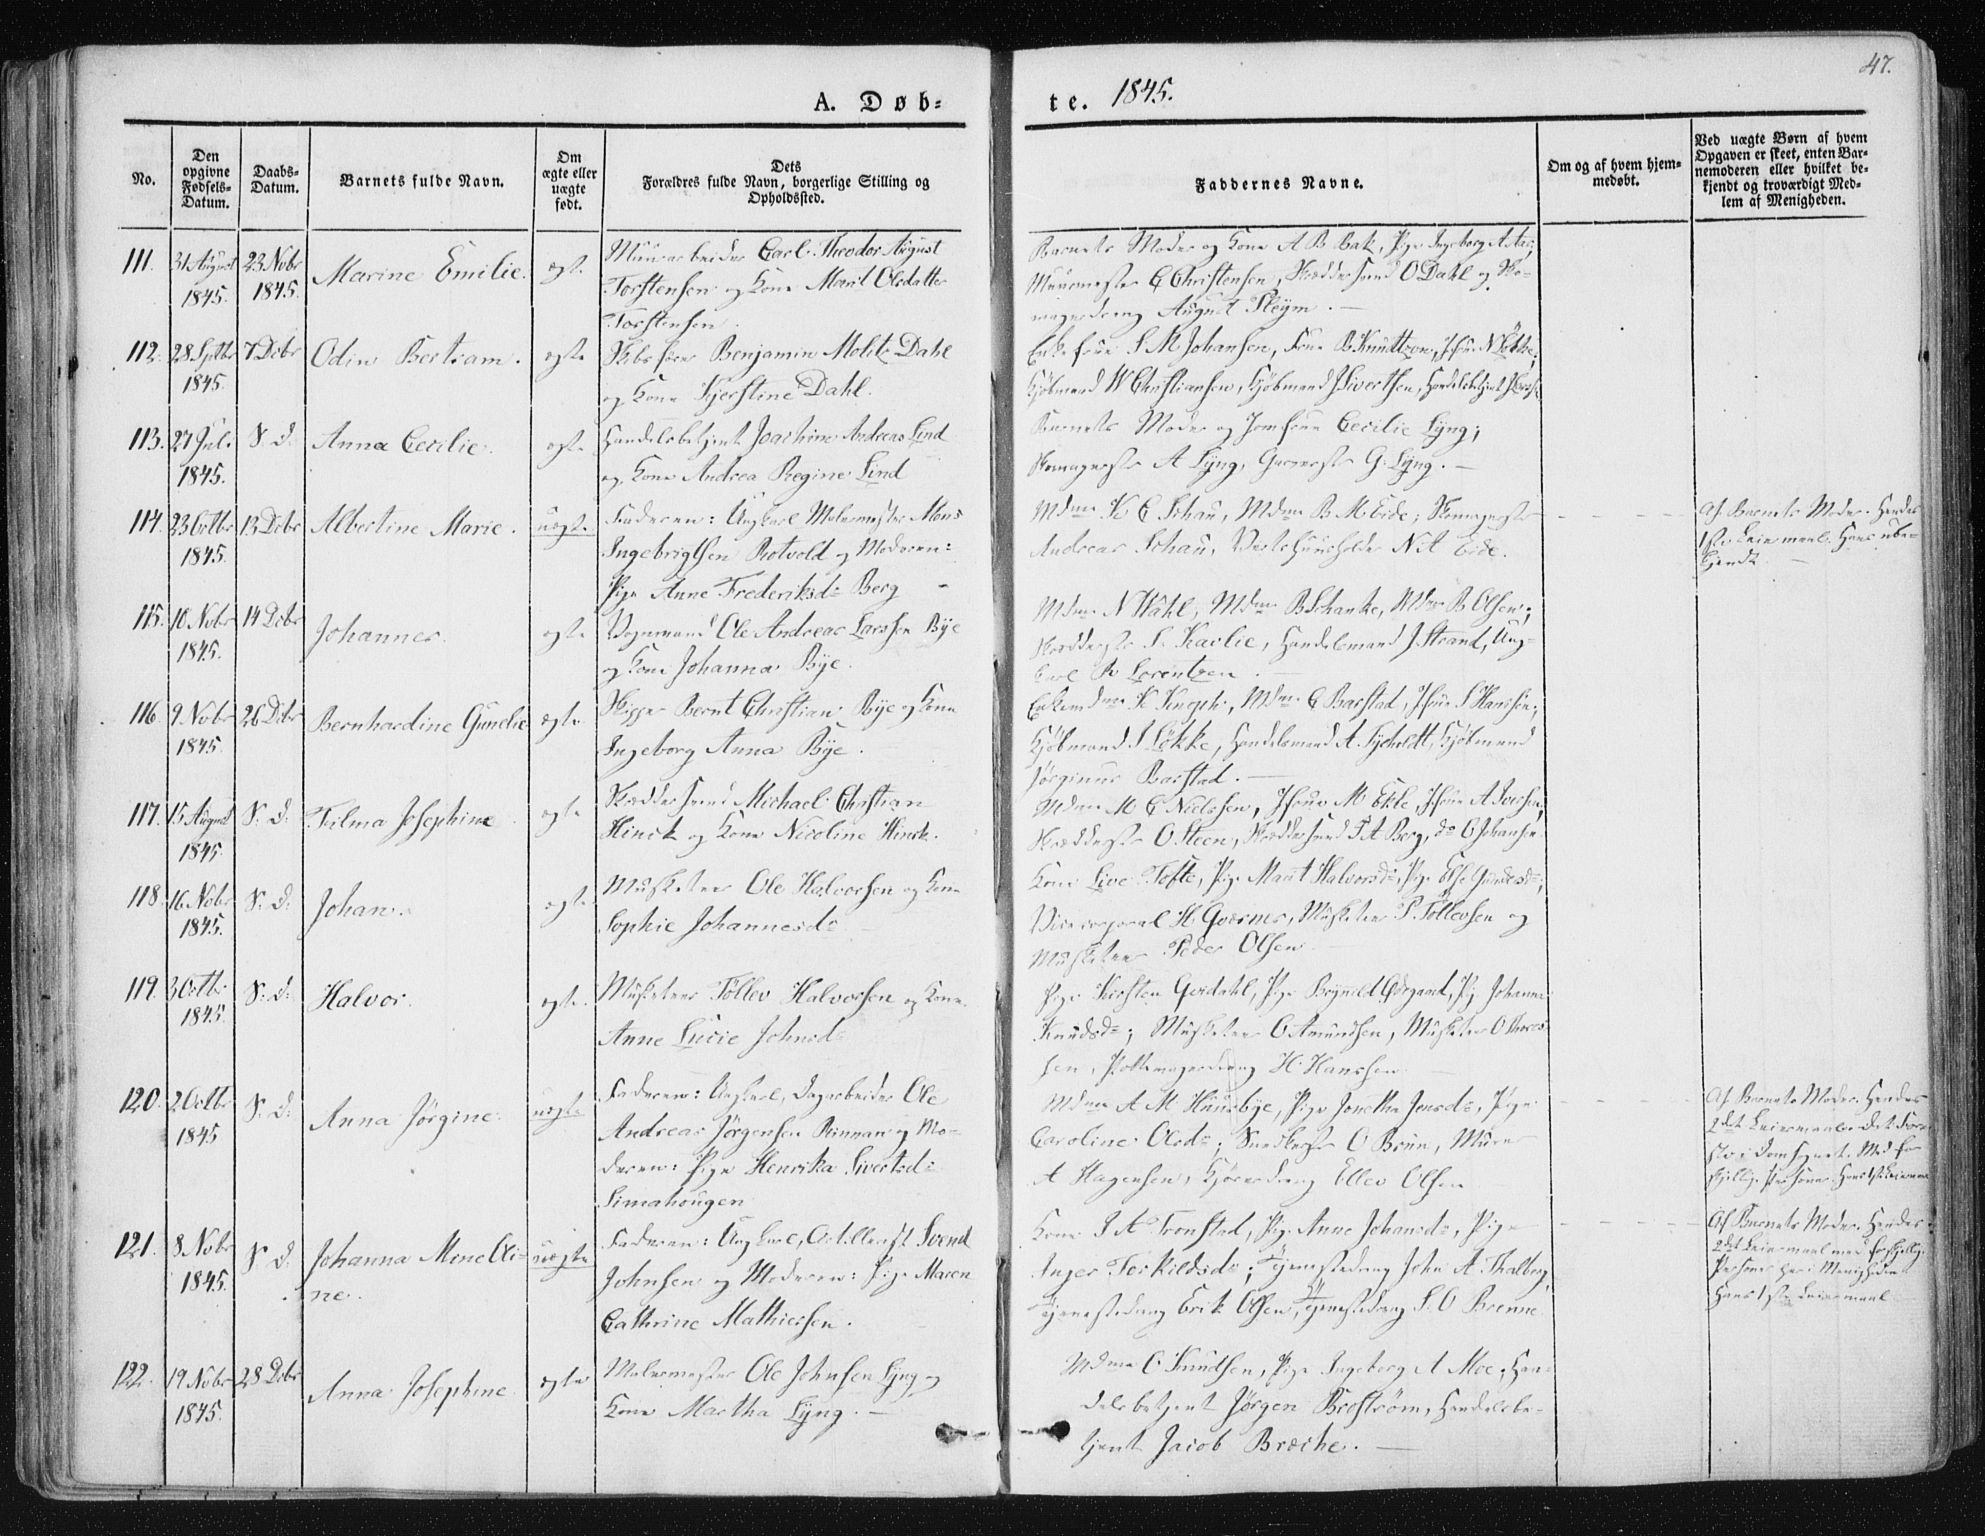 47.
A. Døb-
te. 1845.
No.
Den opgivne Fødsels-Datum.
Daabs-Datum.
Barnets fulde Navn.
Om ægte eller uægte født.
Dets Forældres fulde Navn, borgerlige Stilling og Opholdssted.
Faddernes Navne.
Om og af hvem hjem-medøbt.
Ved uægte Børn af hvem Opgaven er skeet, enten Bar-nemoderen eller hvilket be-kjendt og troværdigt Med-lem af Menigheden.
111. 31 August 1845. 23 Novbr 1845. Marine Emilie. ægte
Muurarbeider Carl Theodor August
Torstensen og Kone Marit Olsdatter
Torstensen.
Barnets Moder og Kone A B Bak, Pige Ingeborg A
Muurmester C Christensen, Skræddersvend O Dahl og Sko-
magerdreng August Pleym.
112. 28 Septbr 1845. 7 Debr Odin Bertram. ægte
Benjamin Moliz Dahl
og Kone Kjerstine Dahl.
Enkefrue S M Johansen, Frue B Knudtzon, Jfrue N Løkke;
Kjøbmand W Christiansen, Kjøbmand J Sivertsen, Handelsbetjent
113. 27 Juli 1845. S. d. Anna Cecilie. ægte
Handelsbetjent Joachim Andreas Lind
og Kone Andrea Regine Lind
Barnets Moder og Jomfrue Cecilie Lyng;
A Lyng, G. Lyng.
114. 23 Octbr 1845. 13 Debr Albertine Marie. uægte
Faderen: Ungkarl Malermester Mons
Ingebrigtsen Rotvold og Moderen:
Pige Anne Frederiksdr Berg
Mdme K E Schau, Mdme B M Eide; Skomagerst
Andreas Schau, Værtshuusholder N A Eide.
Af Barnets Moder. Hendes
1ste Leiermaal. Hans ube-
kjendt.
115. 10 Nobr 1845. 14 Debr Johannes. ægte
Vognmand Ole Andreas Larssen Bye
og Kone Johanna Bye.
Mdme N Wahl, Mdme B Schanke, Mdme B Olsen;
S. Kavlie, Handelsmand J. Strand, Ung-
karl R Lorentzen.
116. 9 Nobr 1845. 26 Debr Bernhardine Gunelie ægte
Skipper Bernt Christian Bye og Kone
Ingeborg Anna Bye.
Enkemdme K Knoph, Mdme C Barstad, Jfrue S Hanssen;
Kjøbmand S Løkke, Handelsmand A. Kjøbmand
Jørginus Barstad.
117. 15 August 1845. S. d. Josephine ægte
Skræddersvend Michael Christian
Hinck og Kone Nicoline Hinck.
Mdme M C Nielssen, Jfrue M Ekle, Jfrue A Iversen,
O Steen, Skræddersvend F A Berg, do C Johansen
118. 16 Nobr 1845. S. d. Johan. ægte
Musketeer Ole Halvorsen og Kone
Sophie Johannesdr
Kone Live Tofte, Pige Marit Halvorsdr, Pige Else
Vicecorporal H Musketeer P. Tollevsen og
Musketeer Peder Olsen
119. 3 Octbr 1845. S. d. Halvor. ægte
Musketeer Tollev Halvorsen og Kone
Anne Lucie Johnsdr
Pige Kirsten Pige Brynild Pige Johanna
Knudsdr; Musketeer C Amundsen, Musketeer O Thores-
sen, Pottemagerdreng H. Hanssen.
120. 2 Octbr 1845 S. d. Anna Jørgine. uægte
Faderen: Ungkarl, Dagarbeider Ole
Andreas Jørgensen Rinnan og Mo-
deren: Pige Henrika Sivertsdr
Simahougen
Mdme A M Huusbye, Pige Jonetha Jensdr, Pige
Caroline Olsdr; O Bruun, Murer
A Hagensen, Kjøredreng Ellev Olsen
Af Barnets Moder. Hendes
2det Leiermaal. Det før-
ste i Domsognet. Med for-
skjellig Personer. Hans 1ste Leiermaal
121. 8 Nobr 1845. S. d. Johanna Mine Oli-
ne. uægte
Faderen: Ungkarl, Artillerist Svend
Johnsen og Moderen: Pige Maren
Cathrine Mathiessen.
Kone J A Tronstad, Pige Anne Johansdr, Pige
Anger Terkildsdr; Tjenestedreng John A Thalberg,
Tjenestedreng Erik Olsen, Tjenestedreng S. O Brenne
Af Barnets Moder. Hendes
2det Leiermaal med forskjellig
Person her i Menigheden.
Hans 1ste Leiermaal
122. 19 Nobr 1845. 28 Debr Anna Josephine. ægte
Malermester Ole Johnsen Lyng og
Kone Martha Lyng.
Mdme C Knudsen, Pige Ingeborg A Moe; Han-
delsbetjent Jørgen Broström, Handelsbe-
tjent Jacob Bræche.